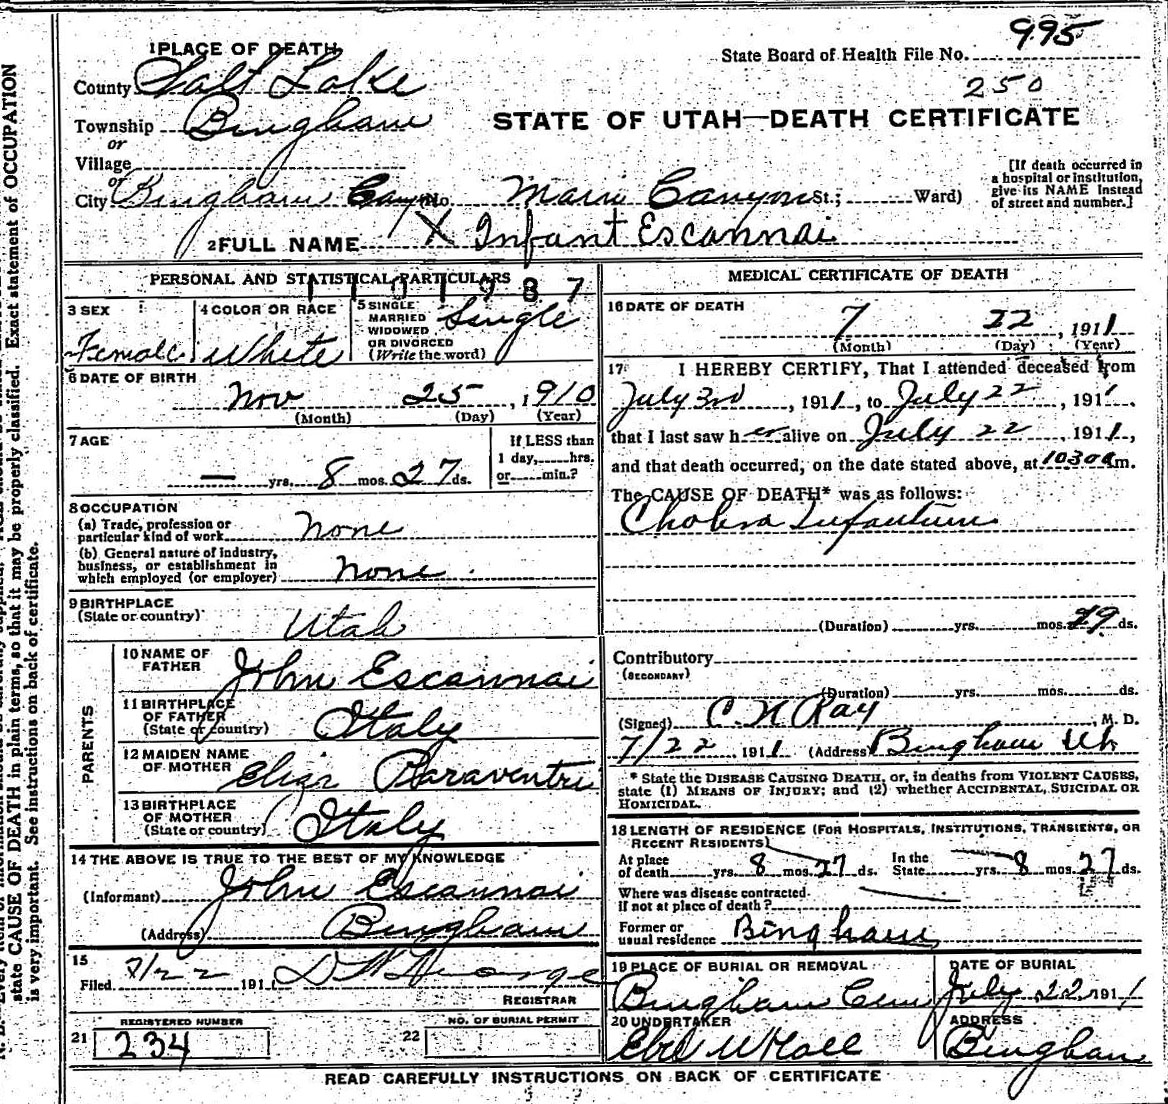 state CAUSE OF DEATH in plain terms, so that it may be properly classified. Exact statement of OCCUPATION
is very important. See instructions on back of certificate.
1 PLACE OF DEATH
State Board of Health File No. 995
County Salt Lake
250
Township Bingham
or
STATE OF UTAH—DEATH CERTIFICATE
Village
or
City Bingham Can No. Main Canyon St.; Ward)
[If death occurred in
a hospital or institution,
give its NAME instead
of street and number.]
2 FULL NAME X Infant Escannai
PERSONAL AND STATISTICAL PARTICULARS
3 SEX
Female
4 COLOR OR RACE
White
5 SINGLE
MARRIED
WIDOWED
OR DIVORCED
(Write the word)
Single
6 DATE OF BIRTH
Nov 25, 1910
(Month) (Day) (Year)
7 AGE
— yrs. 8 mos. 27 ds.
If LESS than
1 day, hrs.
or min.?
8 OCCUPATION
(a) Trade, profession or
particular kind of work none
(b) General nature of industry,
business, or establishment in
which employed (or employer) none
9 BIRTHPLACE
(State or country) Utah
PARENTS
10 NAME OF
FATHER John Escannai
11 BIRTHPLACE
OF FATHER
(State or country) Italy
12 MAIDEN NAME
OF MOTHER Eliza Paraventri
13 BIRTHPLACE
OF MOTHER
(State or country) Italy
14 THE ABOVE IS TRUE TO THE BEST OF MY KNOWLEDGE
(Informant) John Escannai
(Address) Bingham
15
Filed 7/22 191
REGISTRAR
REGISTERED NUMBER
21 234
NO. OF BURIAL PERMIT
22
MEDICAL CERTIFICATE OF DEATH
16 DATE OF DEATH
7 22, 1911
(Month) (Day) (Year)
17 I HEREBY CERTIFY, That I attended deceased from
July 3rd, 1911, to July 22, 1911,
that I last saw her alive on July 22 1911,
and that death occurred, on the date stated above, at 1030 a m.
The CAUSE OF DEATH* was as follows:
Cholera Infantum
(Duration) yrs. mos. 29 ds.
Contributory
(SECONDARY)
(Duration) yrs. mos. ds.
(Signed) C. N Ray, M. D.
7/22, 1911 (Address) Bingham Uh
* State the DISEASE CAUSING DEATH, or, in deaths from VIOLENT CAUSES,
state (1) MEANS OF INJURY; and (2) whether ACCIDENTAL, SUICIDAL OR
HOMICIDAL.
18 LENGTH OF RESIDENCE (FOR HOSPITALS, INSTITUTIONS, TRANSIENTS, OR
RECENT RESIDENTS)
At place of death yrs. 8 mos. 27 ds. In the State yrs. 8 mos. 27 ds.
Where was disease contracted
if not at place of death?
Former or
usual residence Bingham
19 PLACE OF BURIAL OR REMOVAL
Bingham Cem
DATE OF BURIAL
July 22 1911
20 UNDERTAKER
ADDRESS
Bingham
READ CAREFULLY INSTRUCTIONS ON BACK OF CERTIFICATE